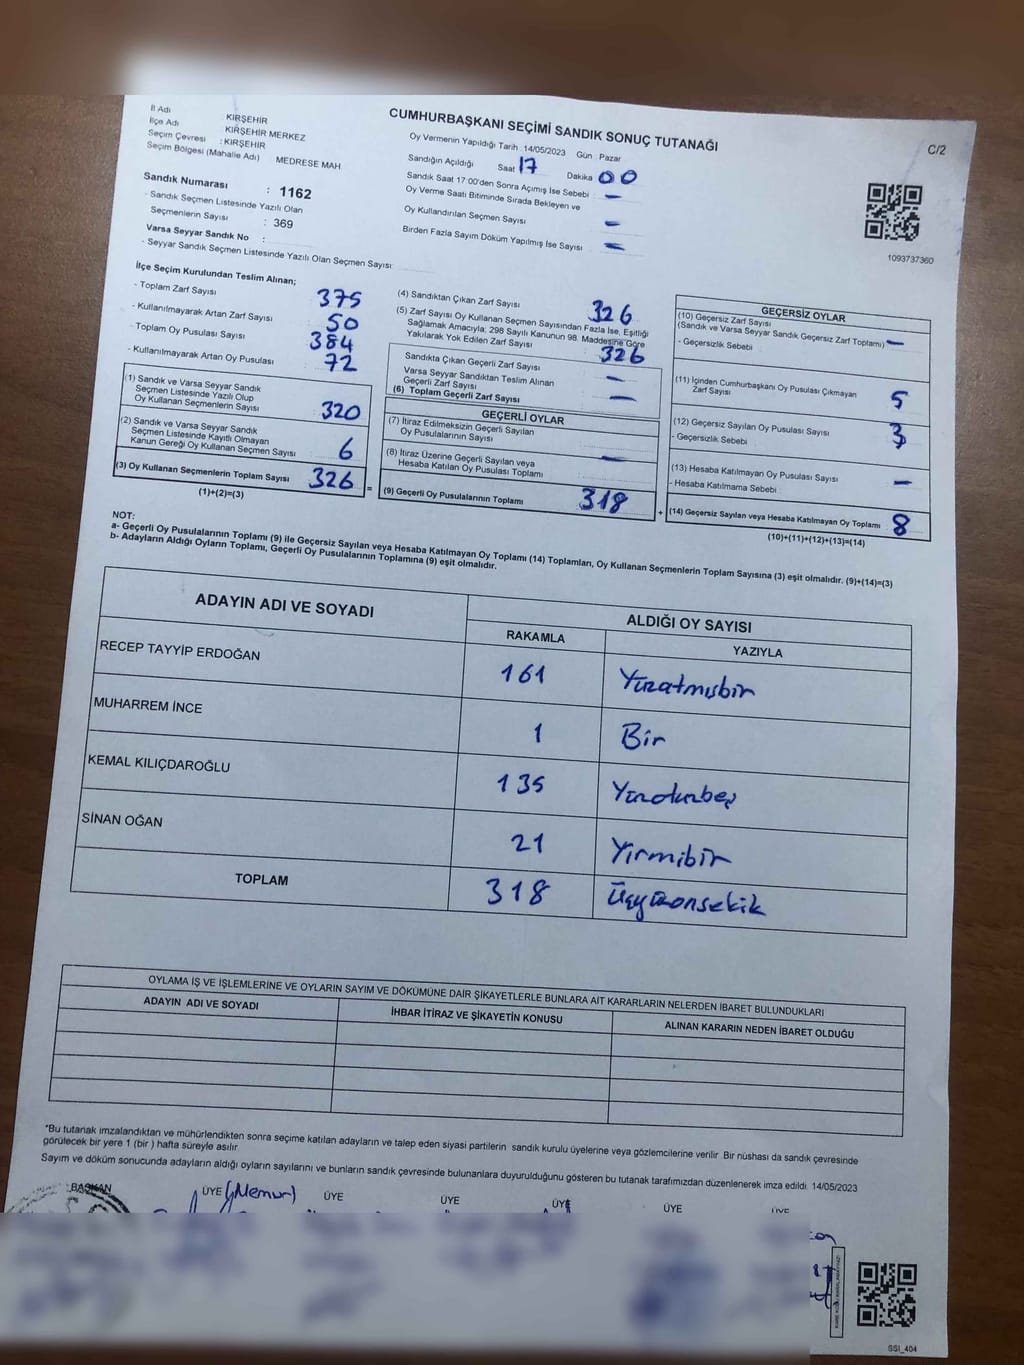 İl Adı KIRŞEHİR
İlçe Adı KIRŞEHİR MERKEZ
Seçim Çevresi : KIRŞEHİR
Seçim Bölgesi (Mahalle Adı) MEDRESE MAH
Sandık Numarası : 1162
- Sandık Seçmen Listesinde Yazılı Olan
Seçmenlerin Sayısı : 369
Varsa Seyyar Sandık No :
- Seyyar Sandık Seçmen Listesinde Yazılı Olan Seçmen Sayısı:
CUMHURBAŞKANI SEÇİMİ SANDIK SONUÇ TUTANAĞI
C/2
Oy Vermenin Yapıldığı Tarih :14/05/2023 Gün : Pazar
Sandığın Açıldığı Saat 17 Dakika 00
Sandık Saat 17 00'den Sonra Açımış İse Sebebi : –
Oy Verme Saati Bitiminde Sırada Bekleyen ve
Oy Kullandırılan Seçmen Sayısı –
Birden Fazla Sayım Döküm Yapılmış İse Sayısı –
1093737360
İlçe Seçim Kurulundan Teslim Alınan;
- Toplam Zarf Sayısı 375
- Kullanılmayarak Artan Zarf Sayısı 50
- Toplam Oy Pusulası Sayısı 384
- Kullanılmayarak Artan Oy Pusulası 72
(1) Sandık ve Varsa Seyyar Sandık
Seçmen Listesinde Yazılı Olup
Oy Kullanan Seçmenlerin Sayısı 320
(2) Sandık ve Varsa Seyyar Sandık
Seçmen Listesinde Kayıtlı Olmayan
Kanun Gereği Oy Kullanan Seçmen Sayısı 6
(3) Oy Kullanan Seçmenlerin Toplam Sayısı 326
(1)+(2)=(3)
(4) Sandıktan Çıkan Zarf Sayısı 326
(5) Zarf Sayısı Oy Kullanan Seçmen Sayısından Fazla İse, Eşitliği
Sağlamak Amacıyla; 298 Sayılı Kanunun 98. Maddesine Göre
Yakılarak Yok Edilen Zarf Sayısı
Sandıkta Çıkan Geçerli Zarf Sayısı 326
Varsa Seyyar Sandıktan Teslim Alınan
Geçerli Zarf Sayısı –
(6) Toplam Geçerli Zarf Sayısı –
GEÇERLİ OYLAR
(7) İtiraz Edilmeksizin Geçerli Sayılan
Oy Pusulalarının Sayısı
(8) İtiraz Üzerine Geçerli Sayılan veya
Hesaba Katılan Oy Pusulası Toplamı –
= (9) Geçerli Oy Pusulalarının Toplamı 318
GEÇERSİZ OYLAR
(10) Geçersiz Zarf Sayısı
(Sandık ve Varsa Seyyar Sandık Geçersiz Zarf Toplamı) –
- Geçersizlik Sebebi
(11) İçinden Cumhurbaşkanı Oy Pusulası Çıkmayan
Zarf Sayısı 5
(12) Geçersiz Sayılan Oy Pusulası Sayısı 3
- Geçersizlik Sebebi
(13) Hesaba Katılmayan Oy Pusulası Sayısı –
- Hesaba Katılmama Sebebi
+ (14) Geçersiz Sayılan veya Hesaba Katılmayan Oy Toplamı 8
(10)+(11)+(12)+(13)=(14)
NOT:
a- Geçerli Oy Pusulalarının Toplamı (9) ile Geçersiz Sayılan veya Hesaba Katılmayan Oy Toplamı (14) Toplamları, Oy Kullanan Seçmenlerin Toplam Sayısına (3) eşit olmalıdır. (9)+(14)=(3)
b- Adayların Aldığı Oyların Toplamı, Geçerli Oy Pusulalarının Toplamına (9) eşit olmalıdır.
ADAYIN ADI VE SOYADI ALDIĞI OY SAYISI
RAKAMLA YAZIYLA
RECEP TAYYİP ERDOĞAN 161 Yüzatmışbir
MUHARREM İNCE 1 Bir
KEMAL KILIÇDAROĞLU 135
SİNAN OĞAN 21 Yirmibir
TOPLAM 318 Üçyüzonsekik
OYLAMA İŞ VE İŞLEMLERİNE VE OYLARIN SAYIM VE DÖKÜMÜNE DAİR ŞİKAYETLERLE BUNLARA AİT KARARLARIN NELERDEN İBARET BULUNDUKLARI
ADAYIN ADI VE SOYADI İHBAR İTİRAZ VE ŞİKAYETİN KONUSU ALINAN KARARIN NEDEN İBARET OLDUĞU
*Bu tutanak imzalandıktan ve mühürlendikten sonra seçime katılan adayların ve talep eden siyasi partilerin sandık kurulu üyelerine veya gözlemcilerine verilir. Bir nüshası da sandık çevresinde
görülecek bir yere 1 (bir ) hafta süreyle asılır.
Sayım ve döküm sonucunda adayların aldığı oyların sayılarını ve bunların sandık çevresinde bulunanlara duyurulduğunu gösteren bu tutanak tarafımızdan düzenlenerek imza edildi. 14/05/2023
BAŞKAN ÜYE (Memur) ÜYE ÜYE ÜYE ÜYE ÜYE
SSI_404